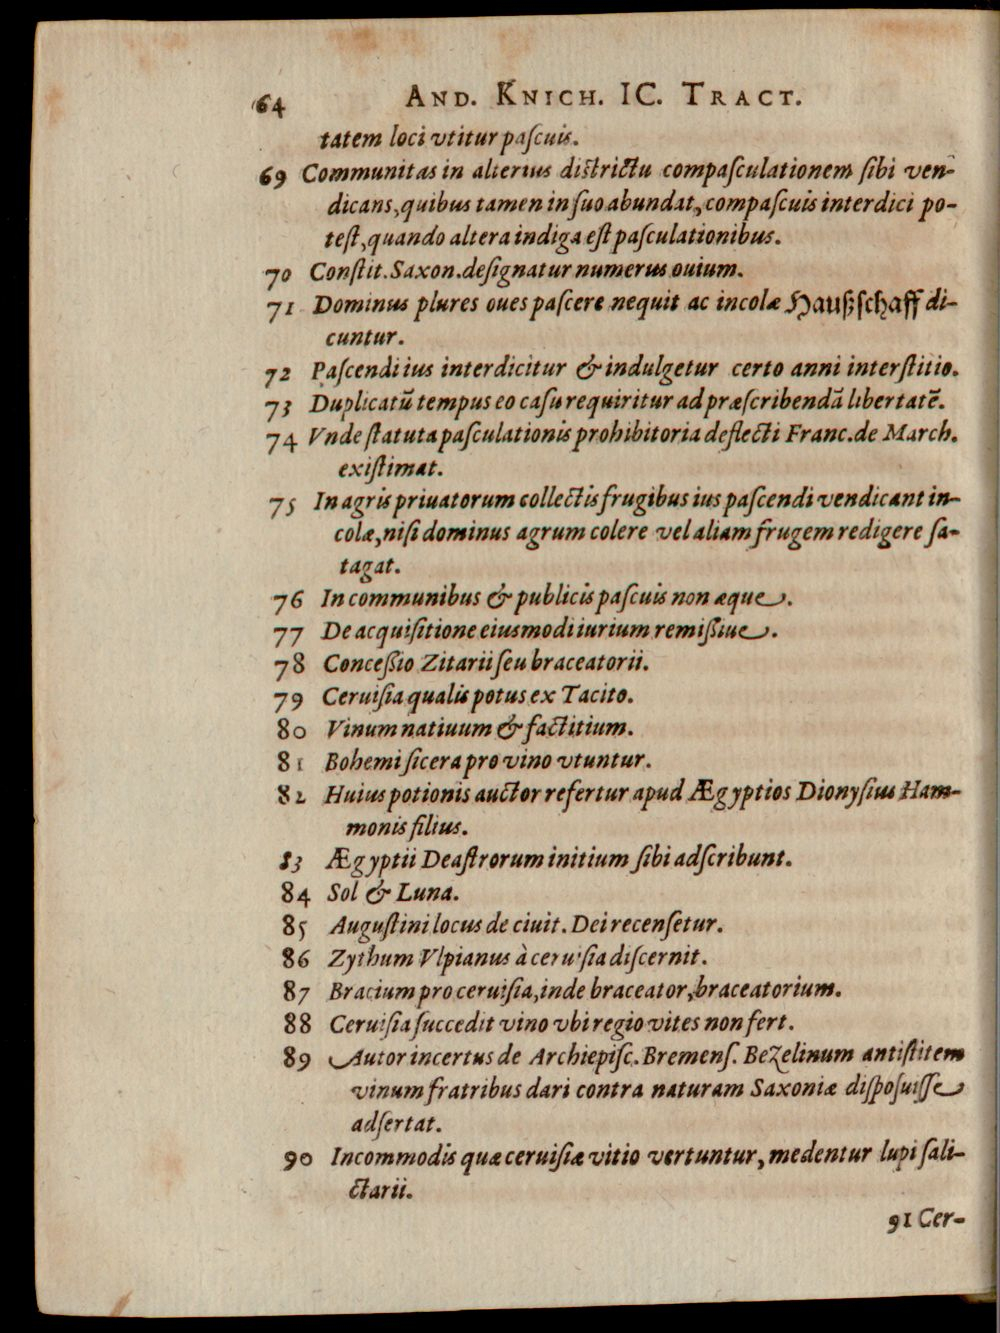 64 AND. KNICH. IC. TRACT.
tatem loci vtitur paſcuis.
69 Communitas in alterius diſtrictu compaſculationem ſibi ven-
dicans, quibus tamen in ſuo abundat, compaſcuis interdici po-
teſt, quando altera indiga eſt paſculationibus.
70 Conſtit. Saxon. deſignatur numerus ouium.
71 Dominus plures oues paſcere nequit ac incolæ Haußſchaff di-
cuntur.
72 Paſcendi ius interdicitur & indulgetur certo anni interſtitio.
73 Duplicatũ tempus eo caſu requiritur ad præſcribendã libertatẽ.
74 Vnde ſtatuta paſculationis prohibitoria deflecti Franc. de March.
exiſtimat.
75 In agris priuatorum collectis frugibus ius paſcendi vendicant in-
colæ, niſi dominus agrum colere vel aliam frugem redigere ſa-
tagat.
76 In communibus & publicis paſcuis non æque.
77 De acquiſitione eiusmodi iurium remißiue.
78 Conceßio Zitarii ſeu braceatorii.
79 Ceruiſia qualis potus ex Tacito.
80 Vinum natiuum & factitium.
81 Bohemi ſicera pro vino vtuntur.
82 Huius potionis auctor refertur apud Ægyptios Dionyſius Ham-
monis filius.
83 Ægyptii Deaſtrorum initium ſibi adſcribunt.
84 Sol & Luna.
85 Auguſtini locus de ciuit. Dei recenſetur.
86 Zythum Vlpianus à ceruiſia diſcernit.
87 Bracium pro ceruiſia, inde braceator, braceatorium.
88 Ceruiſia ſuccedit vino vbi regio vites non fert.
89 Autor incertus de Archiepiſc. Bremenſ. Bezelinum antiſtitem
vinum fratribus dari contra naturam Saxoniæ diſpoſuiſſe
adſertat.
90 Incommodis quæ ceruiſiæ vitio vertuntur, medentur lupi ſali-
ctarii.
91 Cer-